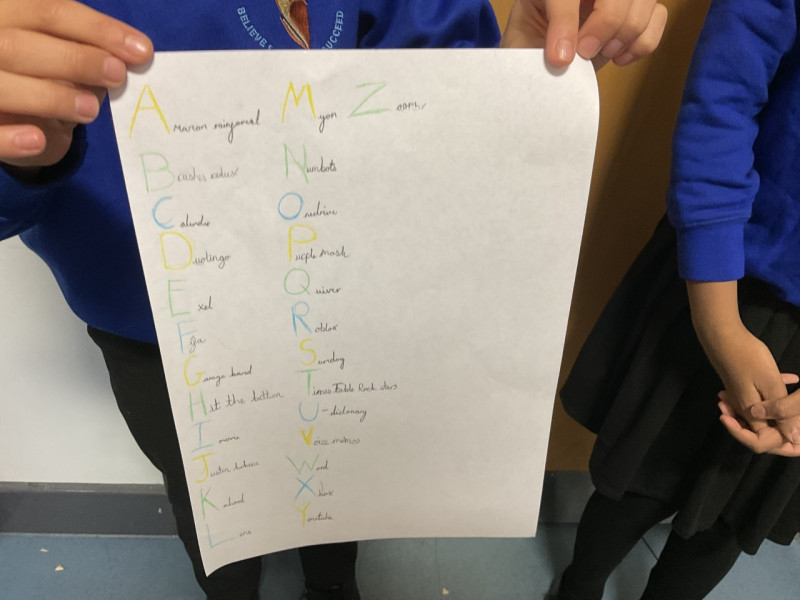 BELIEVE SUCCEED
Amazon
Brushes redux
Calendar
Duolingo
Exel
Garage band
Hit the button
I movie
Justin
Kahoot
Line
Myon
Numbots
Onedrive
Purple Mash
Quiver
Roblox
Sumdog
Times Table Rock stars
U-dictionary
Voice memos
Word
Xbox
Youtube